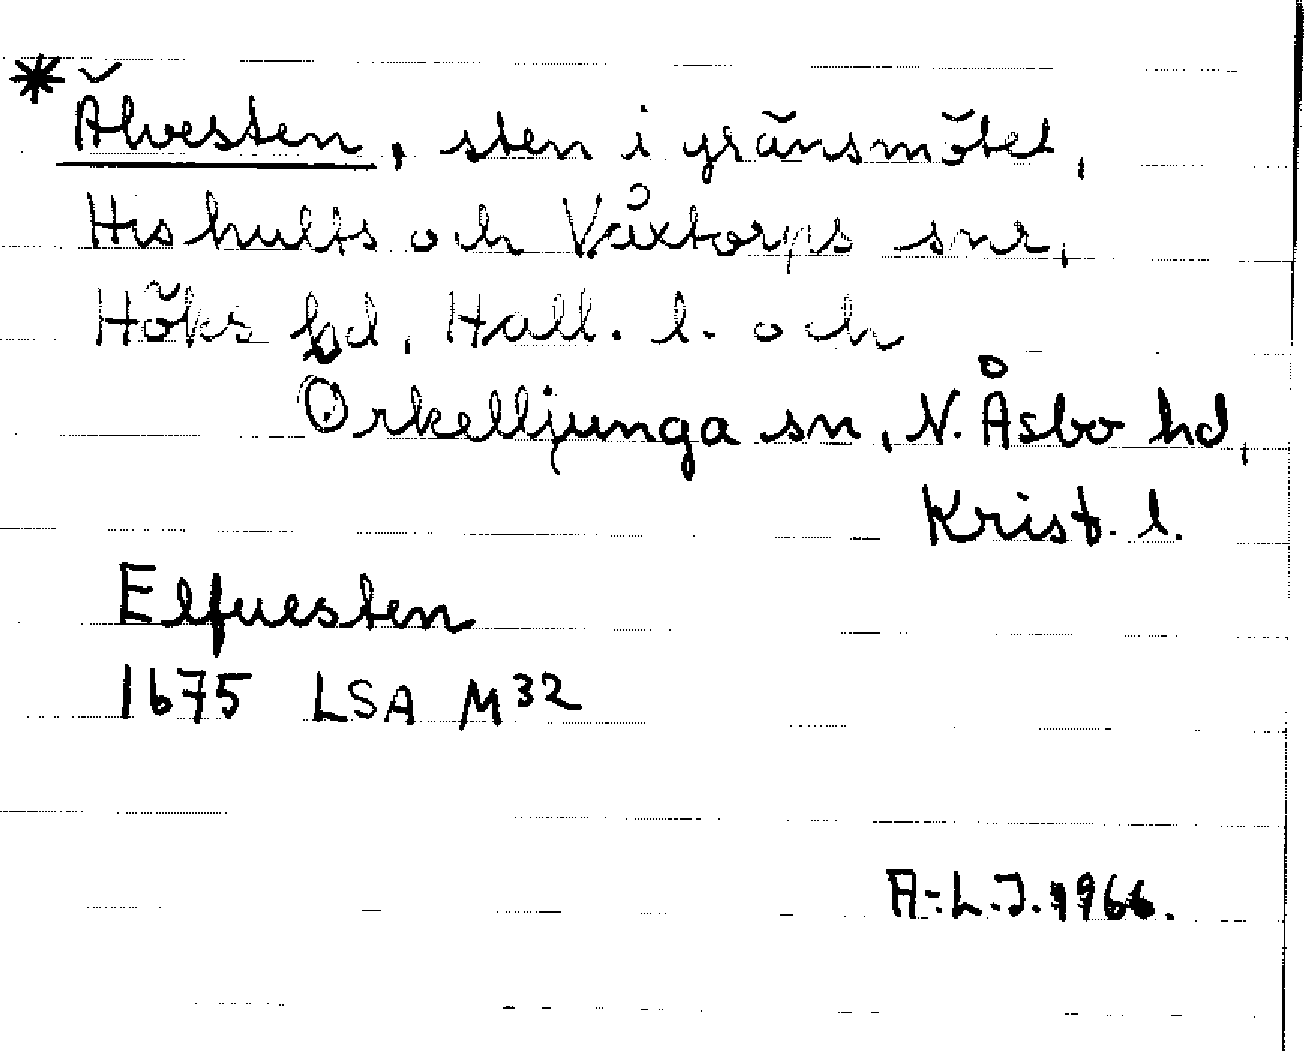 * Älvesten, sten i gränsmötet,
Hishults och Våxtorps snr,
Höks hd, Hall. l. och
Örkelljunga sn, N. Åsbo hd,
Krist. l.
Elfuesten
1675 LSA M32
A-L.J. 1966.